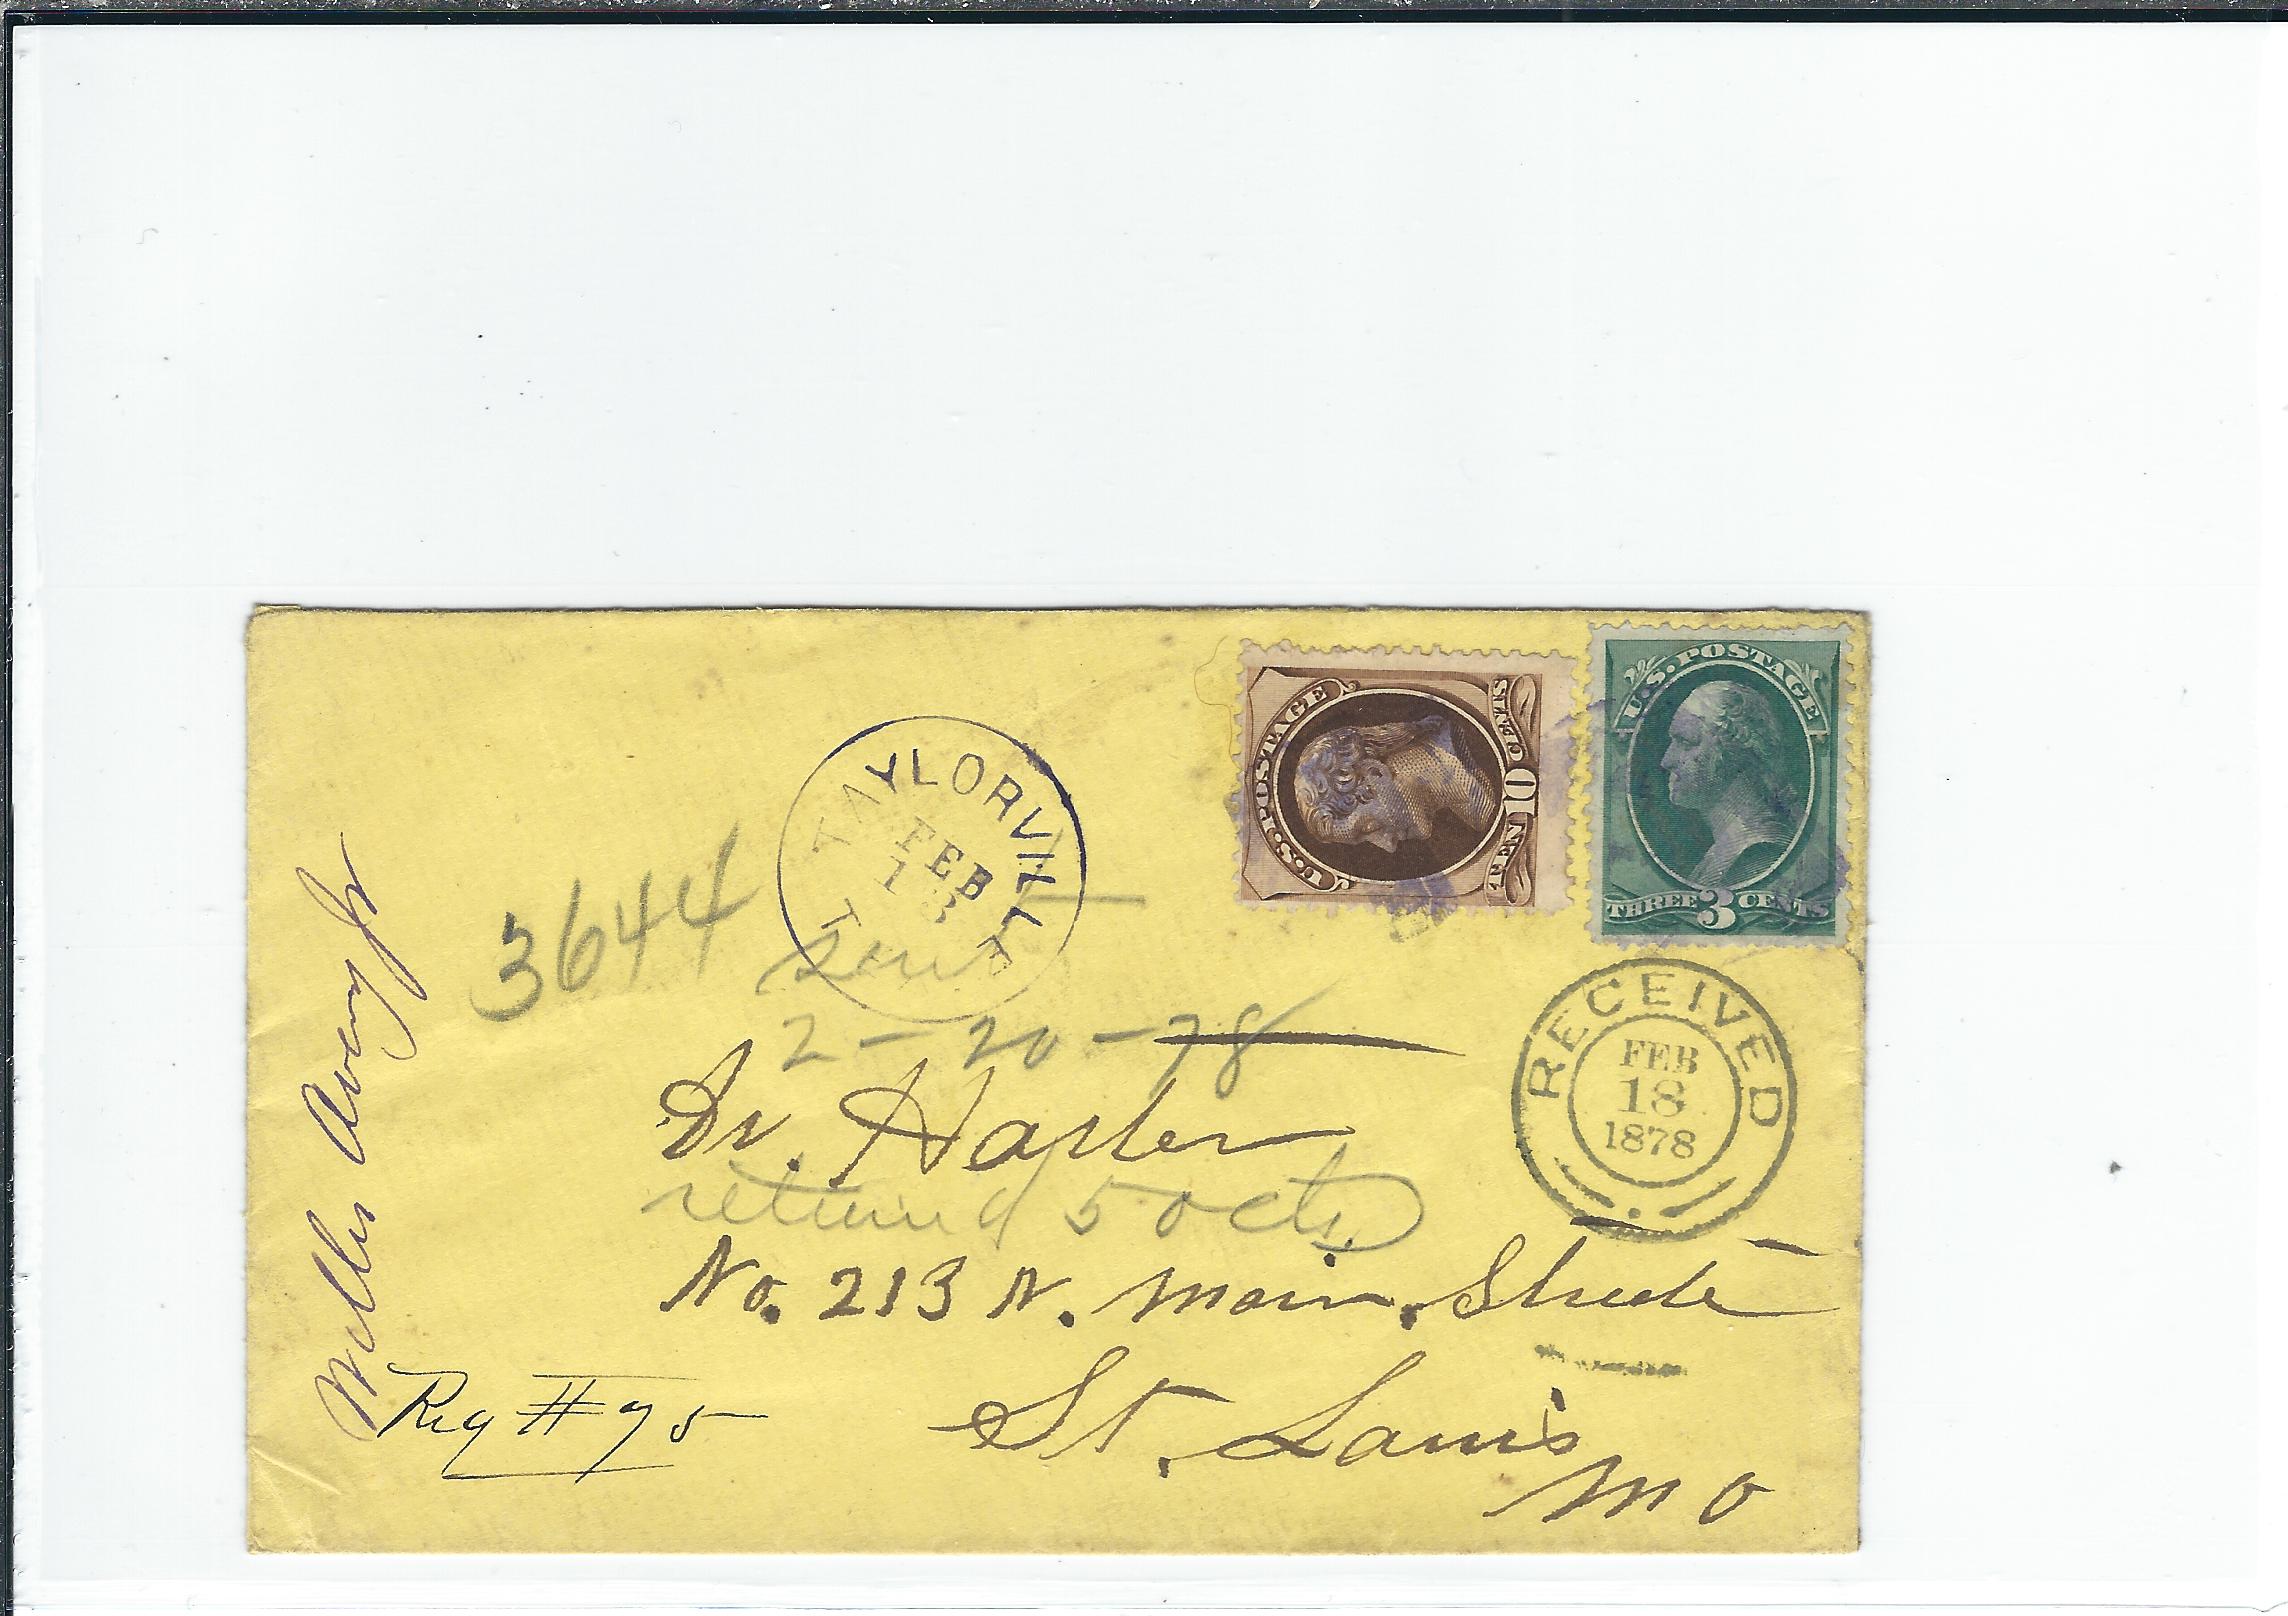 U.S. POSTAGE
TEN 10 CENTS
U.S. POSTAGE
THREE 3 CENTS
TAYLORVILLE
FEB
1
3644
sent
2-20-78
RECEIVED
FEB
18
1878
Dr. Harter
returned 50 cts
No. 213 N. Main. Streete
St. Louis
Mo
Reg # 75
Willis Avery Jr